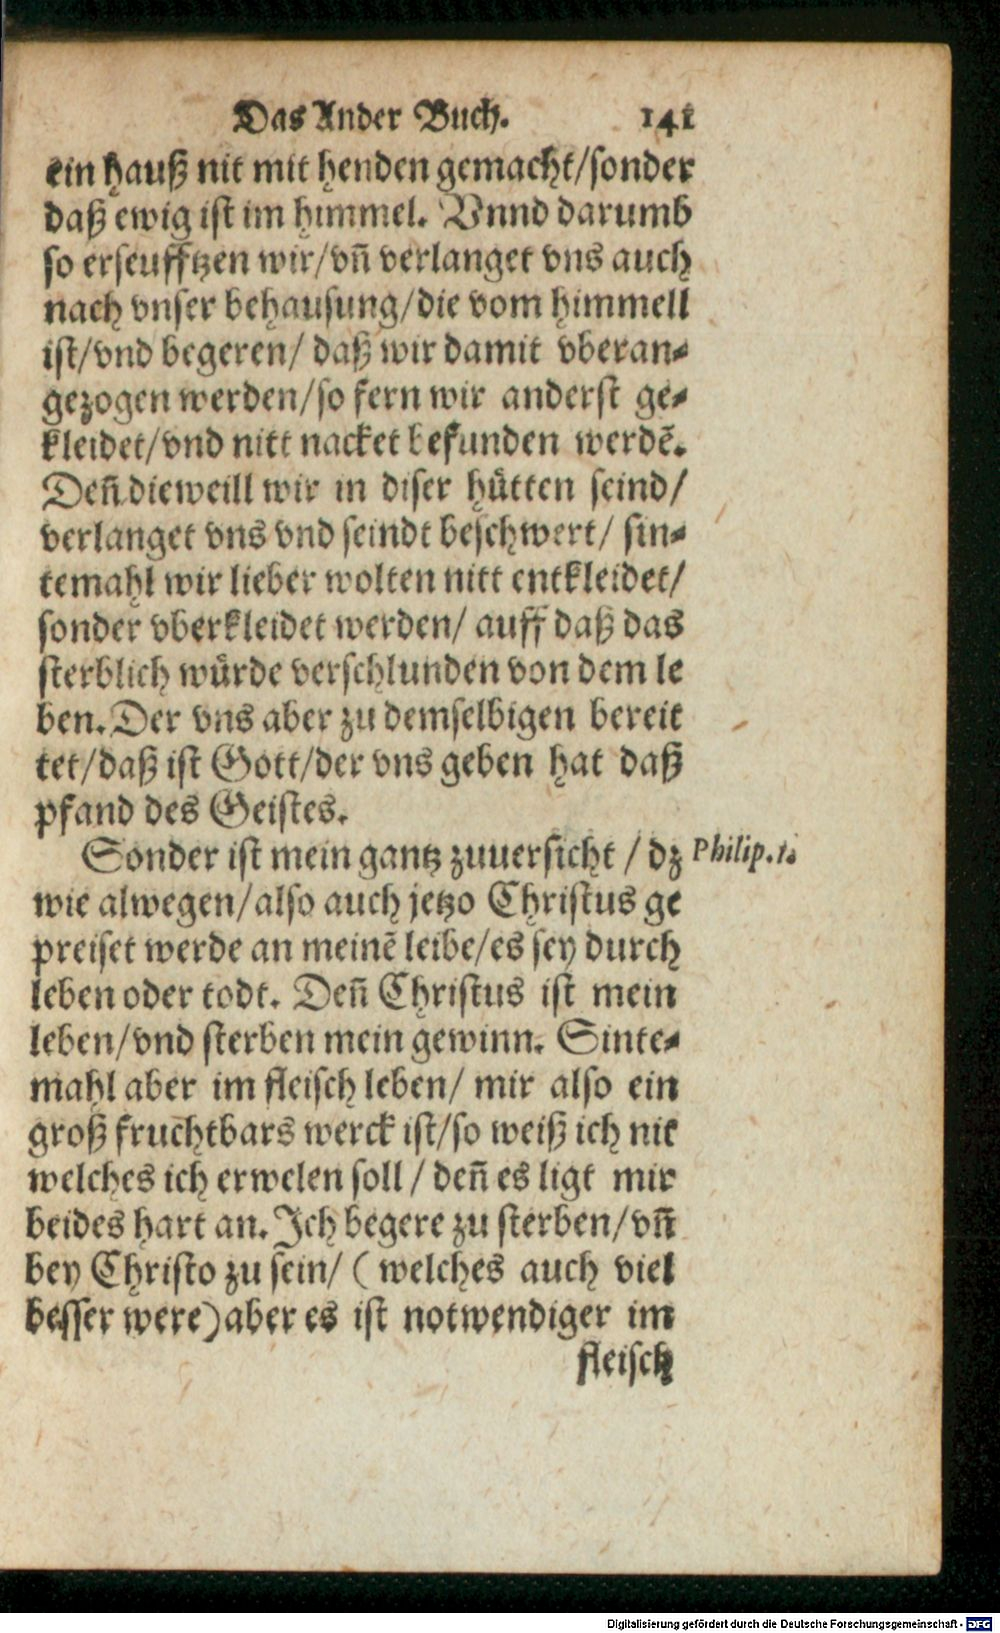 Das Ander Buch. 141
ein hauß nit mit henden gemacht/sonder
daß ewig ist im himmel. Vnnd darumb
so erseufftzen wir/vñ verlanget vns auch
nach vnser behausung/die vom himmell
ist/vnd begeren/ daß wir damit vberan-
gezogen werden/so fern wir anderst ge-
kleidet/vnd nitt nacket befunden werdẽ.
Deñ dieweill wir in diser hütten seind/
verlanget vns vnd seindt beschwert/ sin-
temahl wir lieber wolten nitt entkleidet/
sonder vberkleidet werden/ auff daß das
sterblich würde verschlunden von dem le
ben. Der vns aber zu demselbigen bereit
tet/daß ist Gott/der vns geben hat daß
pfand des Geistes.
Sonder ist mein gantz zuuersicht / dz Philip. 1.
wie alwegen/also auch jetzo Christus ge
preiset werde an meinẽ leibe/es sey durch
leben oder todt. Deñ Christus ist mein
leben/vnd sterben mein gewinn. Sinte-
mahl aber im fleisch leben/ mir also ein
groß fruchtbars werck ist/so weiß ich nit
welches ich erwelen soll / deñ es ligt mir
beides hart an. Ich begere zu sterben/vñ
bey Christo zu sein/ (welches auch viel
besser were) aber es ist notwendiger im
fleisch
Digitalisierung gefördert durch die Deutsche Forschungsgemeinschaft - DFG